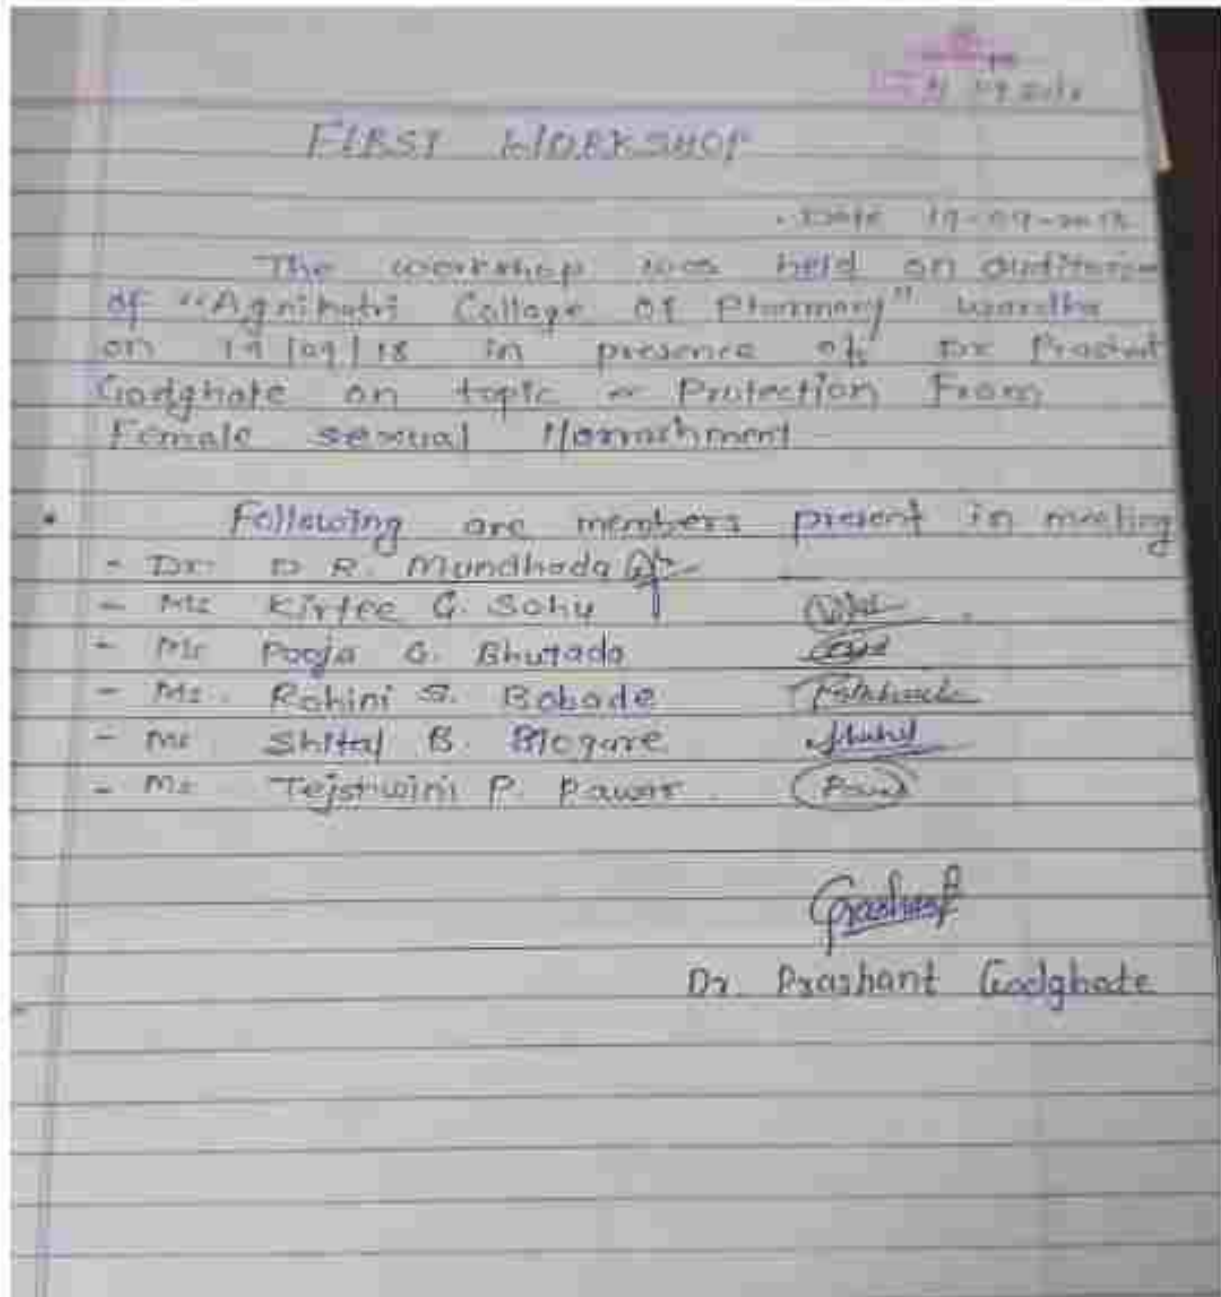 FIRST WORKSHOP
Date 19-09-2018
The workshop was held on auditorium
of "Agnihotri Collage of Pharmacy" Wardha
on 19/09/18 in presence of Dr Prashant
Gadghate on topic - Protection From
Female sexual Harrashment
Following are members present in meeting
- Dr. D R. Mundhada
- Ms Kirtee G. Sahu
- Ms Pooja G. Bhutada
- Ms. Rohini S. Bobade
- Ms Shital B.
- Ms Tejshwini P. Pawar.
Prashant
Dr. Prashant Gadghate